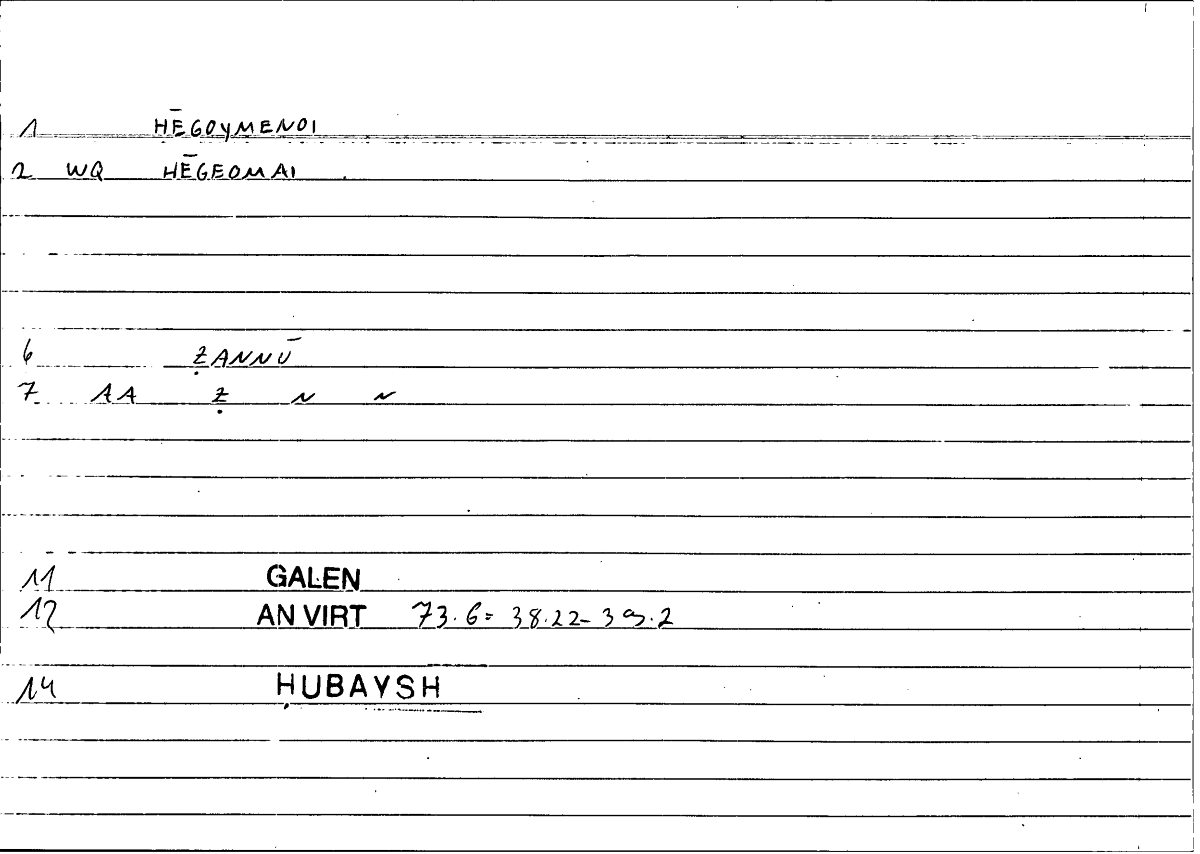 1 HĒGOYMENOI
2 WQ HĒGEOMAI
6 ẒANNŪ
7 AA Ẓ N N
11 GALEN
12 AN VIRT 73.6= 38.22-39.2
14 ḤUBAYSH